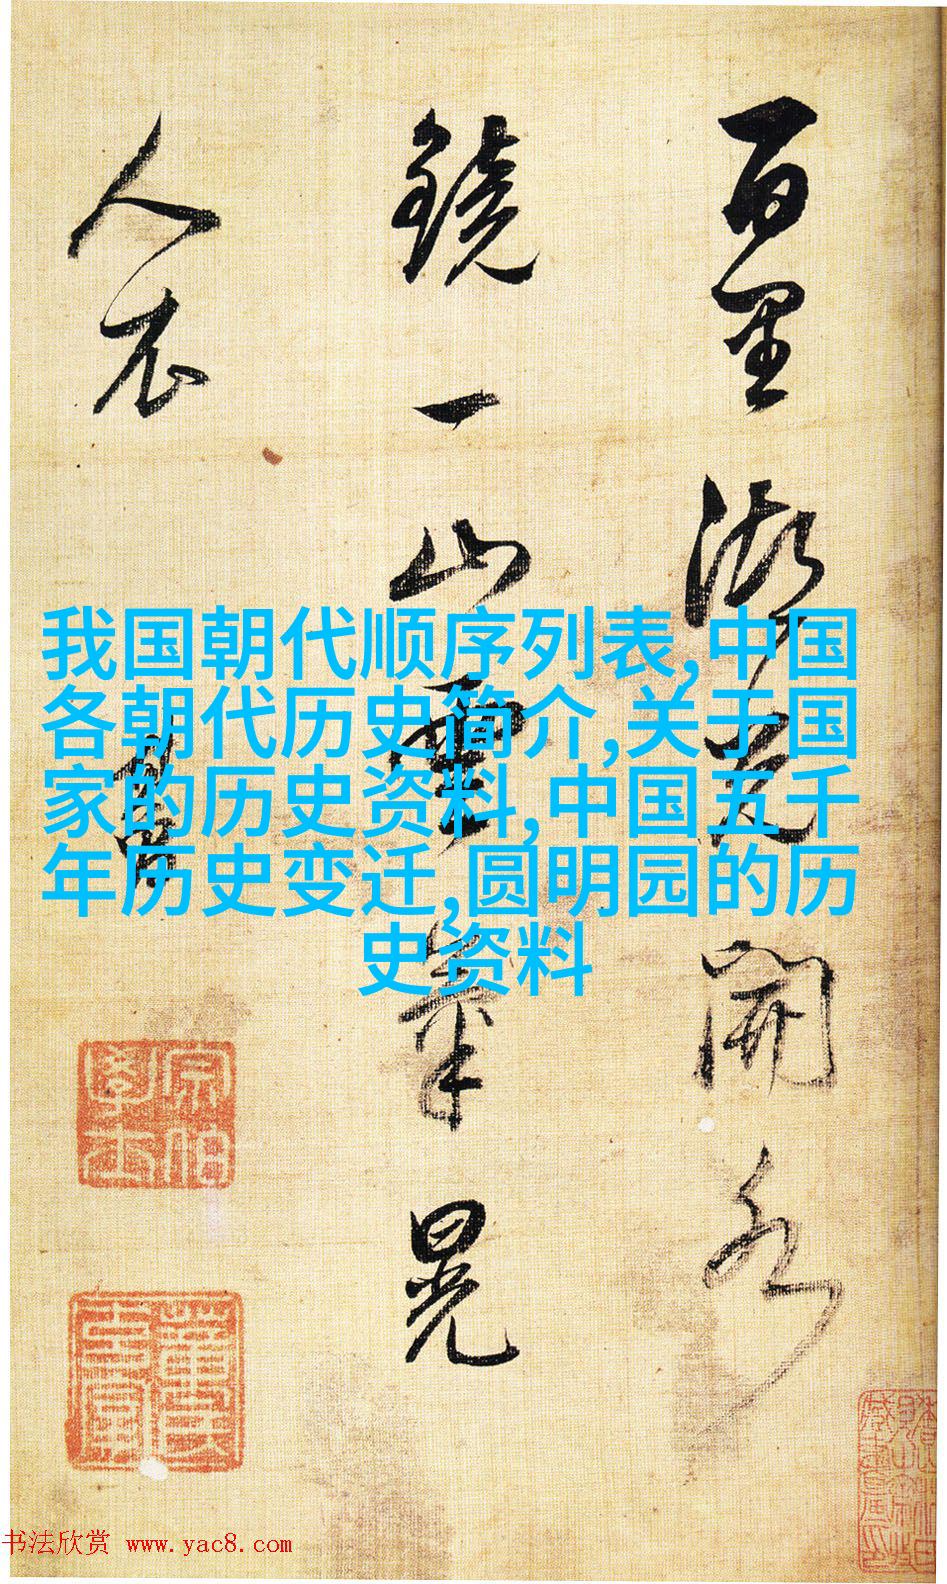 百里湖光開水
鏡一山雲氣晃
人衣
其昌
宗伯學士
董氏玄宰
我国朝代顺序列表,中国
各朝代历史简介,关于国
家的历史资料,中国五千
年历史变迁,圆明园的历
史资料
书法欣赏 www.yac8.com